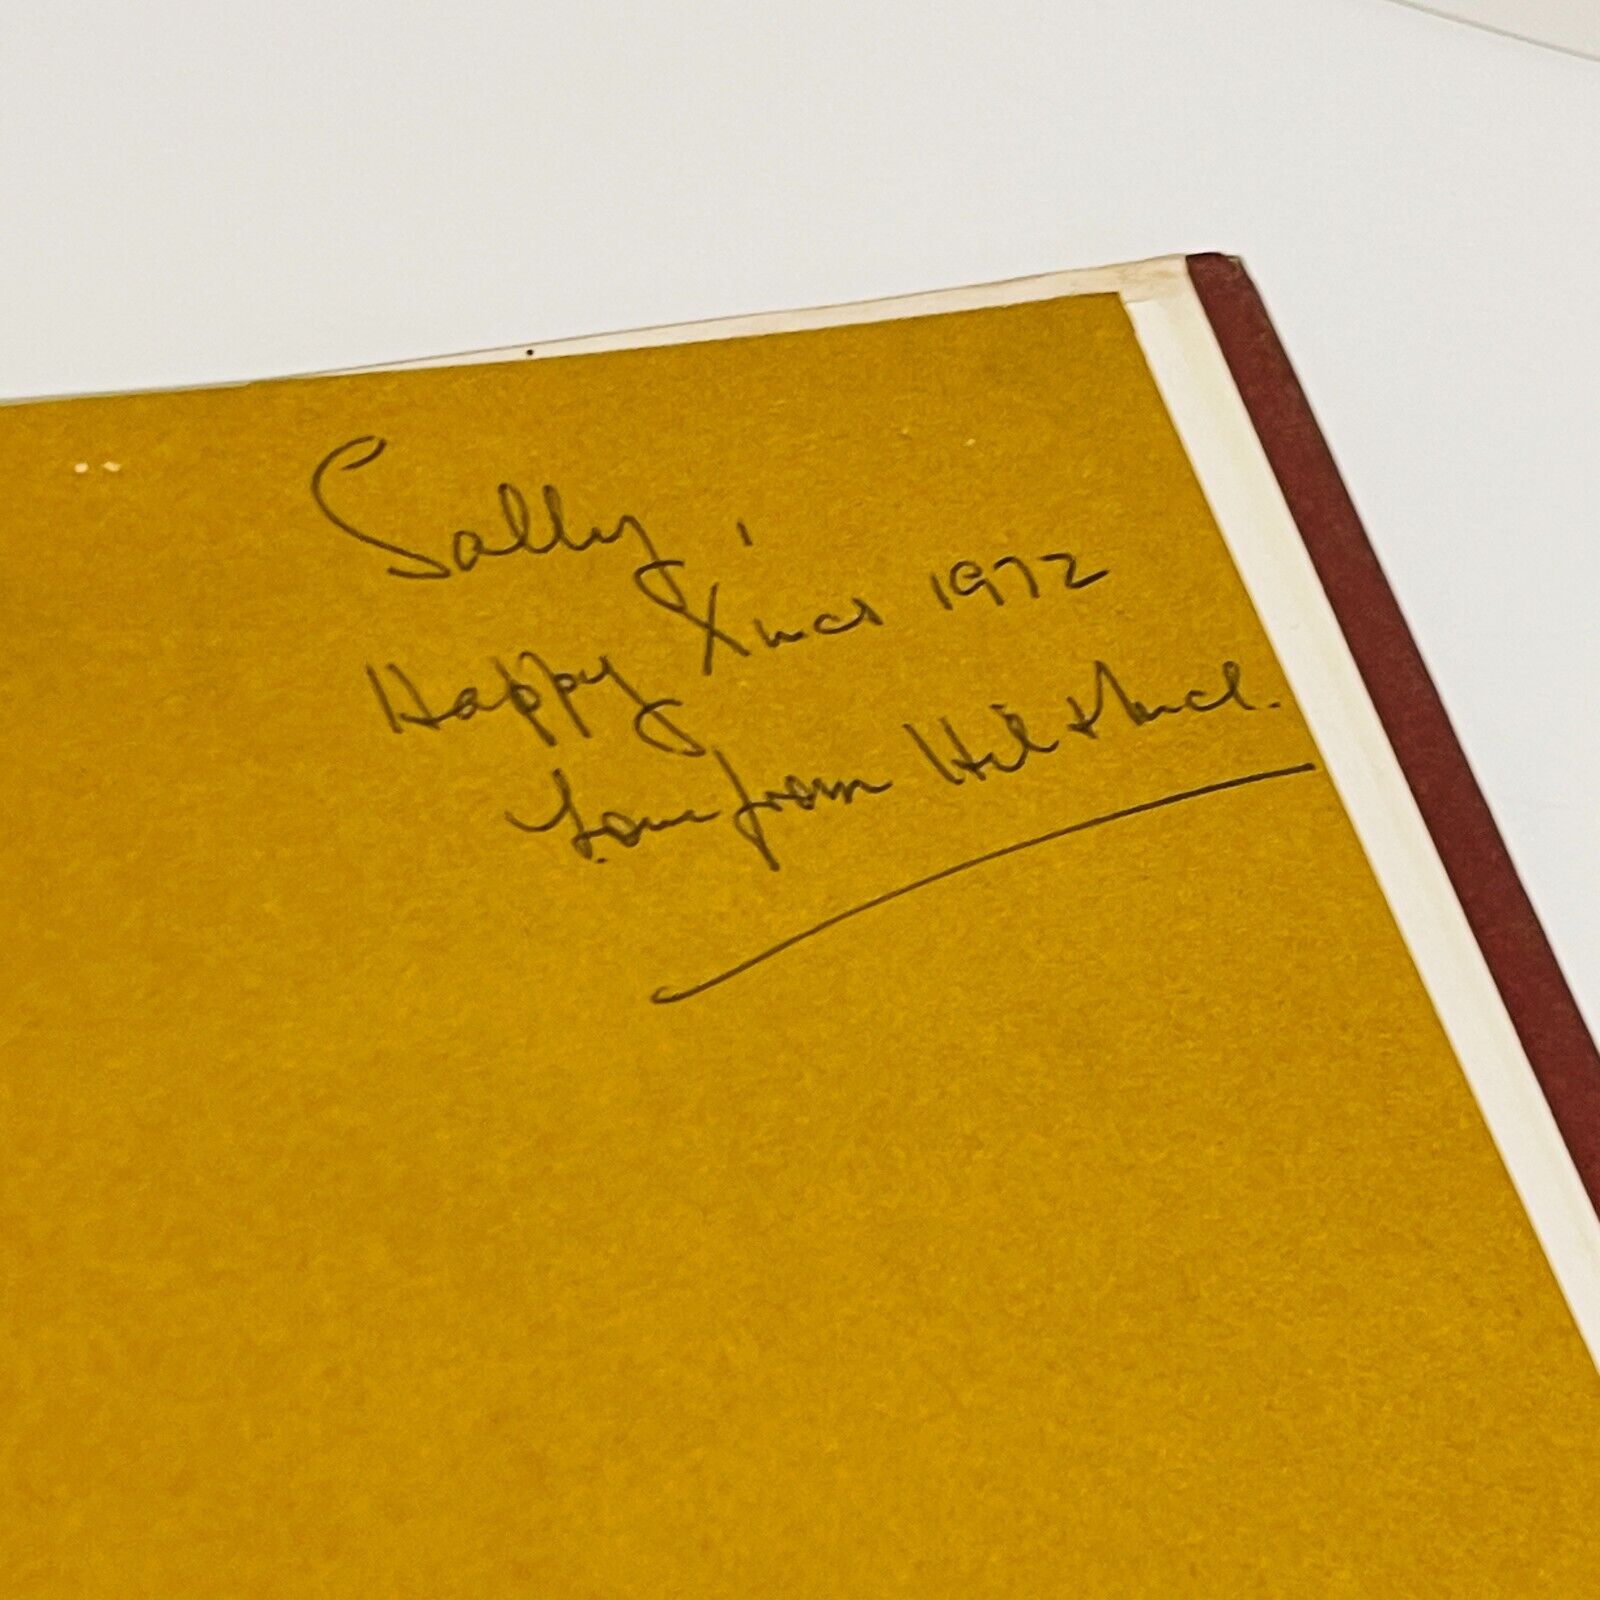 Sally,
Happy Xmas 1972
Love from Hil &